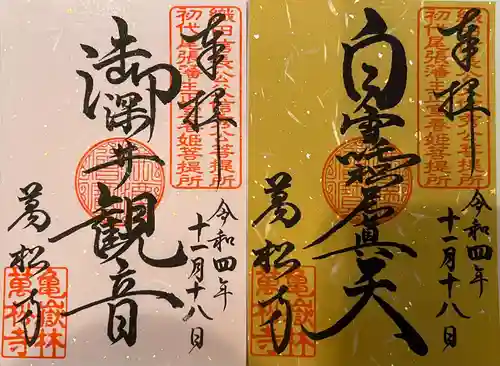 奉拝
織田信長公父信秀公菩提所
初代尾張藩主正室春姫菩提所
御深井観音
令和四年
十一月十八日
萬松寺
亀嶽林
萬松寺
奉拝
織田信長公父信秀公菩提所
初代尾張藩主正室春姫菩提所
白雪眞天
令和四年
十一月十八日
萬松寺
亀嶽林
萬松寺